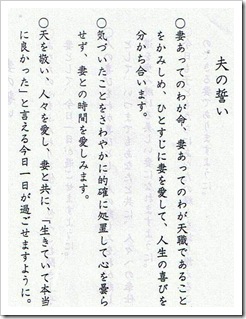 夫の誓い
○妻あってのわが命、妻あってのわが天職であること
をかみしめ、ひとすじに妻を愛して、人生の喜びを
分かち合います。
○気づいたことをさわやかに的確に処置して心を曇ら
せず、妻との時間を愛しみます。
○天を敬い、人々を愛し、妻と共に、「生きていて本当
に良かった」と言える今日一日が過ごせますように。